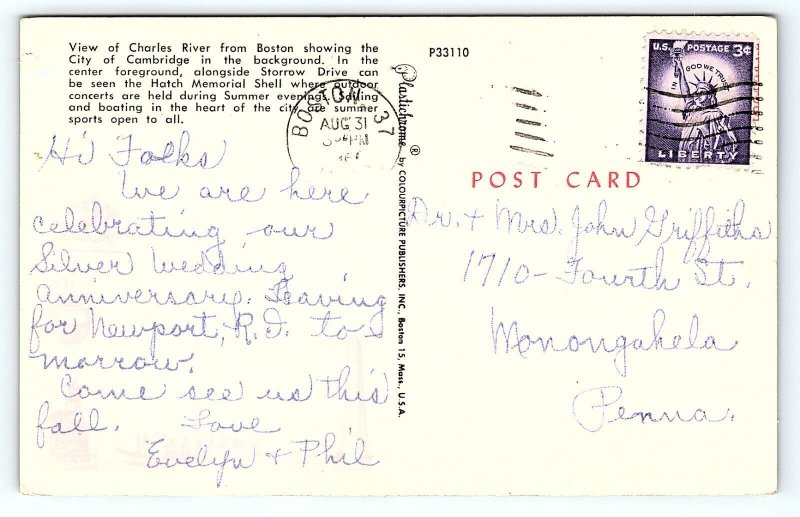 View of Charles River from Boston showing the
City of Cambridge in the background. In the
center foreground, alongside Storrow Drive can
be seen the Hatch Memorial Shell where outdoor
concerts are held during Summer evenings. Sailing
and boating in the heart of the city are summer
sports open to all.
Hi Folks
We are here
celebrating our
Silver Wedding
Anniversary. Leaving
for Newport, R.I. to-
morrow.
Come see us this
fall. Love
Evelyn + Phil
P33110
Plastichrome ® by COLOURPICTURE PUBLISHERS, INC., Boston 15, Mass., U.S.A.
BOSTON 37
AUG 31
PM
U.S. POSTAGE 3¢
IN GOD WE TRUST
LIBERTY
POST CARD
Dr. + Mrs. John Griffiths
1710 - Fourth St.
Monongahela
Penna.